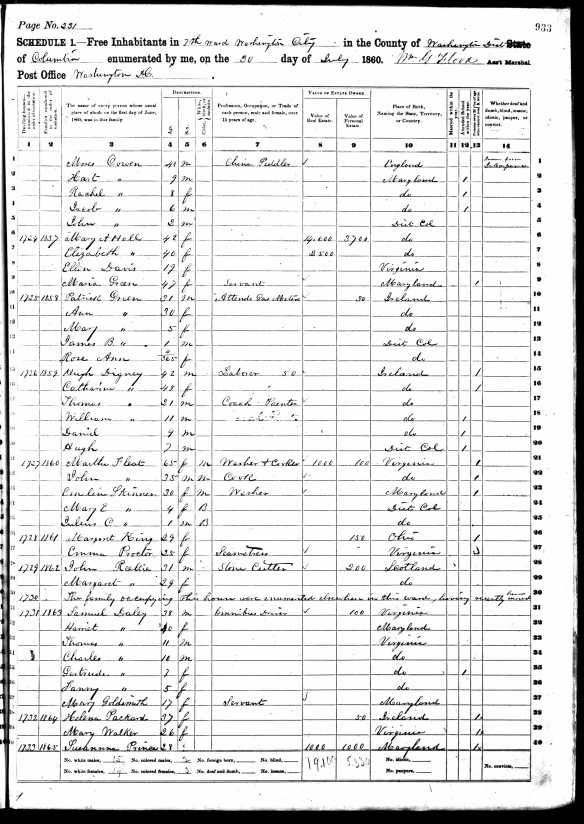 Page No. 231
933
SCHEDULE 1.—Free Inhabitants in 7th Ward Washington City in the County of Washington Dist State
of Columbia enumerated by me, on the 30 day of July 1860. Ass't Marshal
Post Office Washington
DESCRIPTION. VALUE OF ESTATE OWNED.
The name of every person whose usual place of abode on the first day of June, 1860, was in this family.
Age. Sex. Profession, Occupation, or Trade of each person, male and female, over 15 years of age.
Value of Real Estate. Value of Personal Estate.
Place of Birth, Naming the State, Territory, or Country.
Whether deaf and dumb, blind, insane, idiotic, pauper, or convict.
1 2 3 4 5 6 7 8 9 10 11 12 13 14
1 Moses Cowen 41 m Peddler England 1
2 Hart " 9 m Maryland 1 2
3 Rachel " 8 f do 1 3
4 Jacob " 6 m do 1 4
5 John " 2 m Dist Col 5
6 1724 1857 Mary A Hall 42 f 4,000 3700 do 6
7 Elizabeth " 40 f 2500 do 7
8 Ellen Davis 17 f Virginia 8
9 Maria Green 47 f Servant Maryland 1 9
10 1725 1858 Patrick Green 31 m Attends Gas Meter 50 Ireland 10
11 Ann " 30 f do 11
12 Mary " 5 f do 12
13 James B " 1 m Dist Col 13
14 Rose Ann f do 14
15 1726 1859 Hugh Digney 42 m Laborer 50 Ireland 1 15
16 Catharine " 48 f " do 1 16
17 Thomas " 21 m Coach Painter do 17
18 William " 11 m do 1 18
19 Daniel 9 m do 1 19
20 Hugh 7 m Dist Col 1 20
21 1727 1860 Martha Fleat 65 f m Washer & Cook 1000 100 Virginia 1 21
22 John " 35 m m Cook do 1 22
23 Skinner 30 f m Washer Maryland 1 23
24 Mary E " 4 f B Dist Col 24
25 Julius C " 1 m B do 25
26 1728 1861 Margaret King 29 f 150 Ohio 1 26
27 Emma Proctor 25 f Seamstress Virginia 1 27
28 1729 1862 John 31 m Stone Cutter 200 Scotland 28
29 Margaret " 29 f do 29
30 1730 The family occupying this house were enumerated elsewhere in this ward, having recently moved 30
31 1731 1863 Samuel Daley 38 m Omnibus Driver 100 Virginia 31
32 Harriet " 40 f Maryland 32
33 Thomas " 11 m Virginia 33
34 Charles " 10 m do 34
35 Gertrude " 7 f do 1 35
36 Fanny " 5 f do 36
37 Mary Goldsmith 17 f Servant Maryland 37
38 1732 1864 Helena Packard 37 f 50 Ireland 1 38
39 Mary Walker 26 f Virginia 1 39
40 1733 1865 Susannna Prince 28 1000 1000 Maryland 1 40
No. white males, 15 No. colored males, 2 No. foreign born, No. blind,
No. white females, 19 No. colored females, 3 No. deaf and dumb, No. insane,
No. idiotic,
No. paupers,
No. convicts,